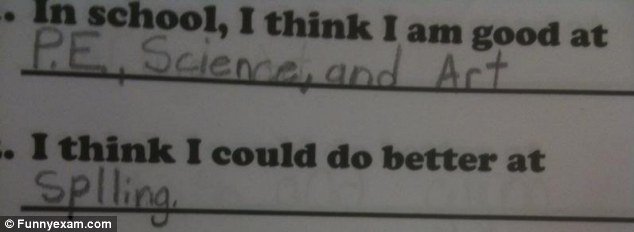 . In school, I think I am good at
P.E, Science, and Art
. I think I could do better at
Splling.
© Funnyexam.com